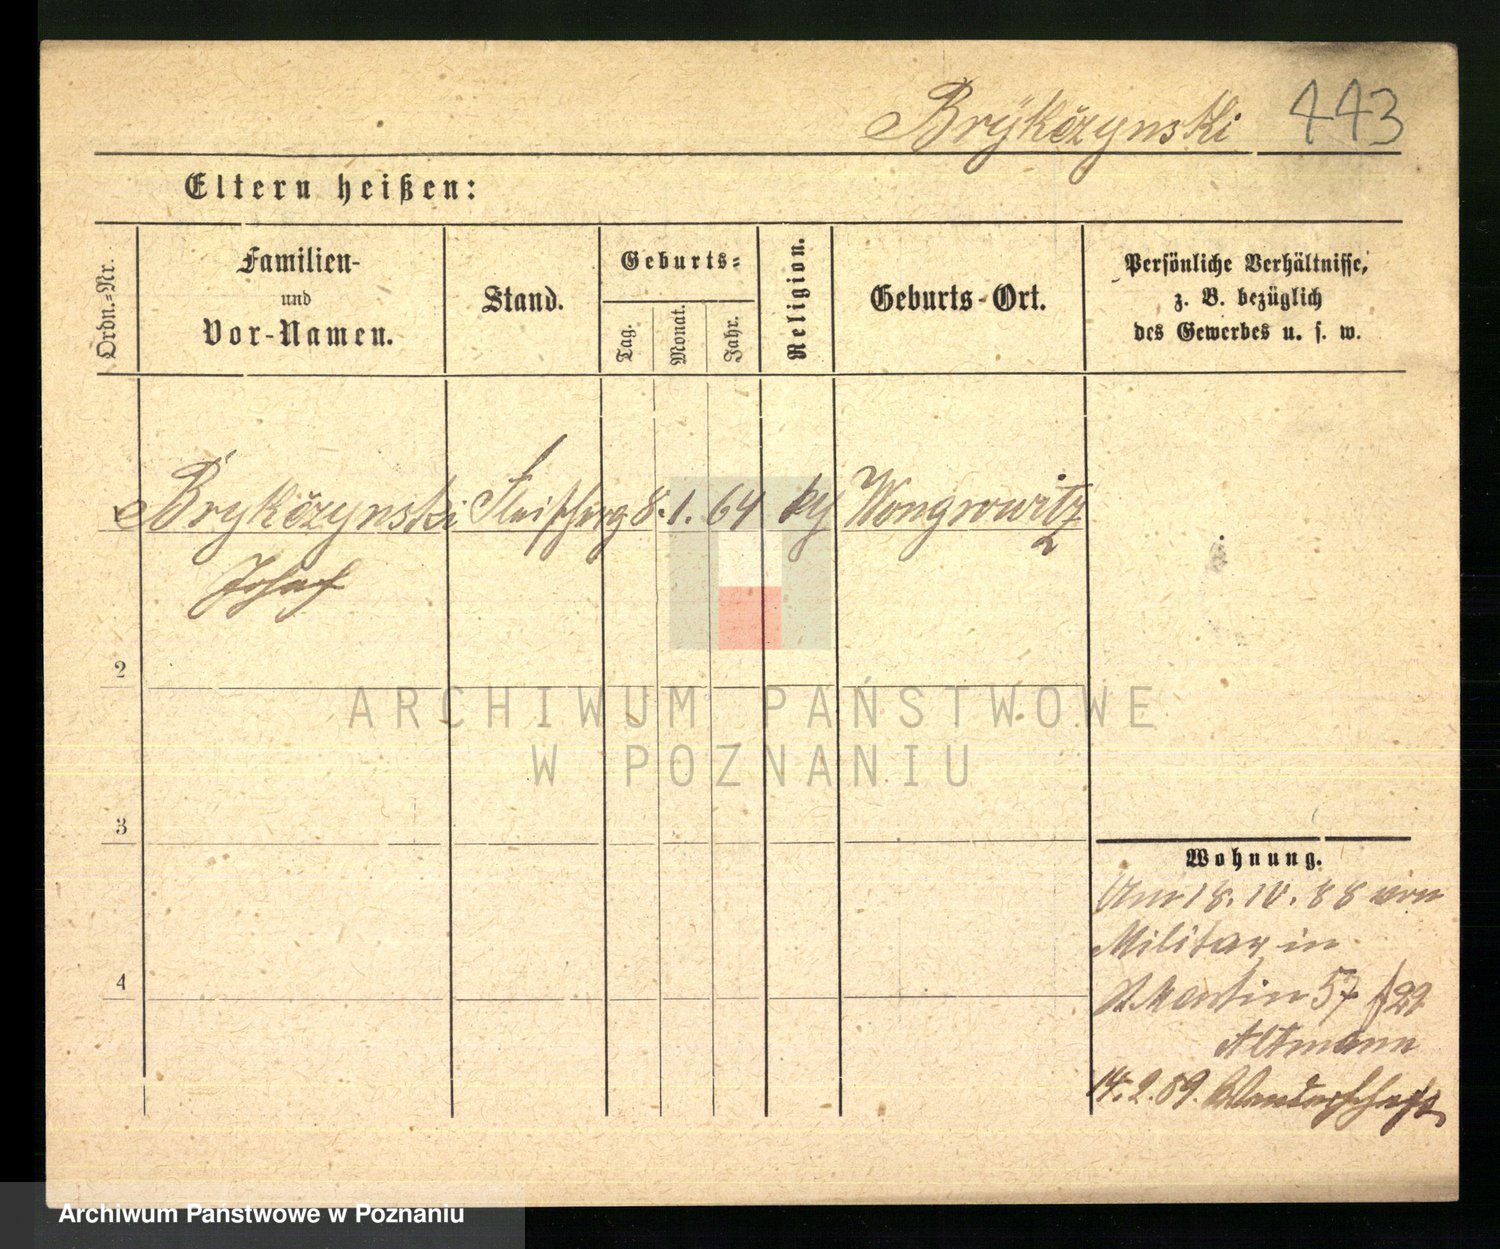 Brÿkczynski 443
Eltern heißen:
Ordn.=Nr.
Familien-
und
Vor-Namen.
Stand.
Geburts=
Tag.
Monat.
Jahr.
Religion.
Geburts-Ort.
Persönliche Verhältnisse,
z. B. bezüglich
des Gewerbes u. s. w.
1 Brykczynski Fleischerg 8. 1. 64 Wongrowitz
Josef
2
3
4
Wohnung.
Am 18. 10. 88 vom
Militär in
St Martin 57
Altmann
14. 2. 89. Wanderschaft
ARCHIWUM PAŃSTWOWE
W POZNANIU
Archiwum Państwowe w Poznaniu